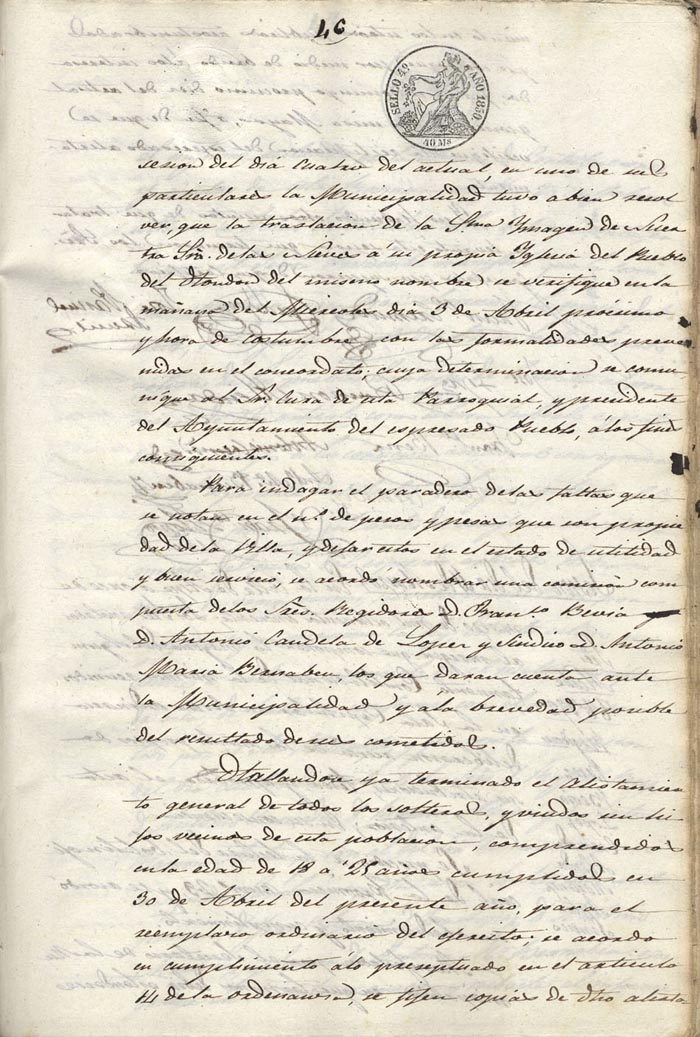 46
SELLO 4º AÑO 1850.
40 Ms
sesion del dia cuatro del actual, en uno de sus
particulares la Municipalidad tuvo a bien resol
ver, que la traslacion de la Sma Ymagen de Nues
tra Sra. de las Nieves á su propia Yglesia del Pueblo
del Hondon del mismo nombre se verifique en la
mañana del Miercoles dia 3 de Abril procsimo
y hora de costumbre con las formalidades preve
nidas en el concordato; cuya determinacion se comu
nique al Sr. Cura de esta Parroquial, y presidente
del Ayuntamiento del espresado Pueblo, á los fines
consiguientes.
Para indagar el paradero de las faltas que
se notan en el nº. de pesos y pesas que son propie
dad de la Villa, y dejarlos en el estado de utilidad
y buen servicio, se acordó nombrar una comision com
puesta de los Sres. Regidores D. Franco. Bevia y
D. Antonio Candela de Lopez y Sindico D. Antonio
Maria Bernabeu, los que daran cuenta ante
la Municipalidad y á la brevedad posible
del resultado de sus cometidos.
Hallandose ya terminado el Alistamien
to general de todos los solteros, y viudos sin hi
jos vecinos de esta poblacion, comprendidos
en la edad de 18 a 25 años cumplidos en
30 de Abril del presente año, para el
reemplazo ordinario del ejercito; se acordo
en cumplimiento á lo preseptuado en el articulo
14 de la ordenanza, se fijen copias de dho alista